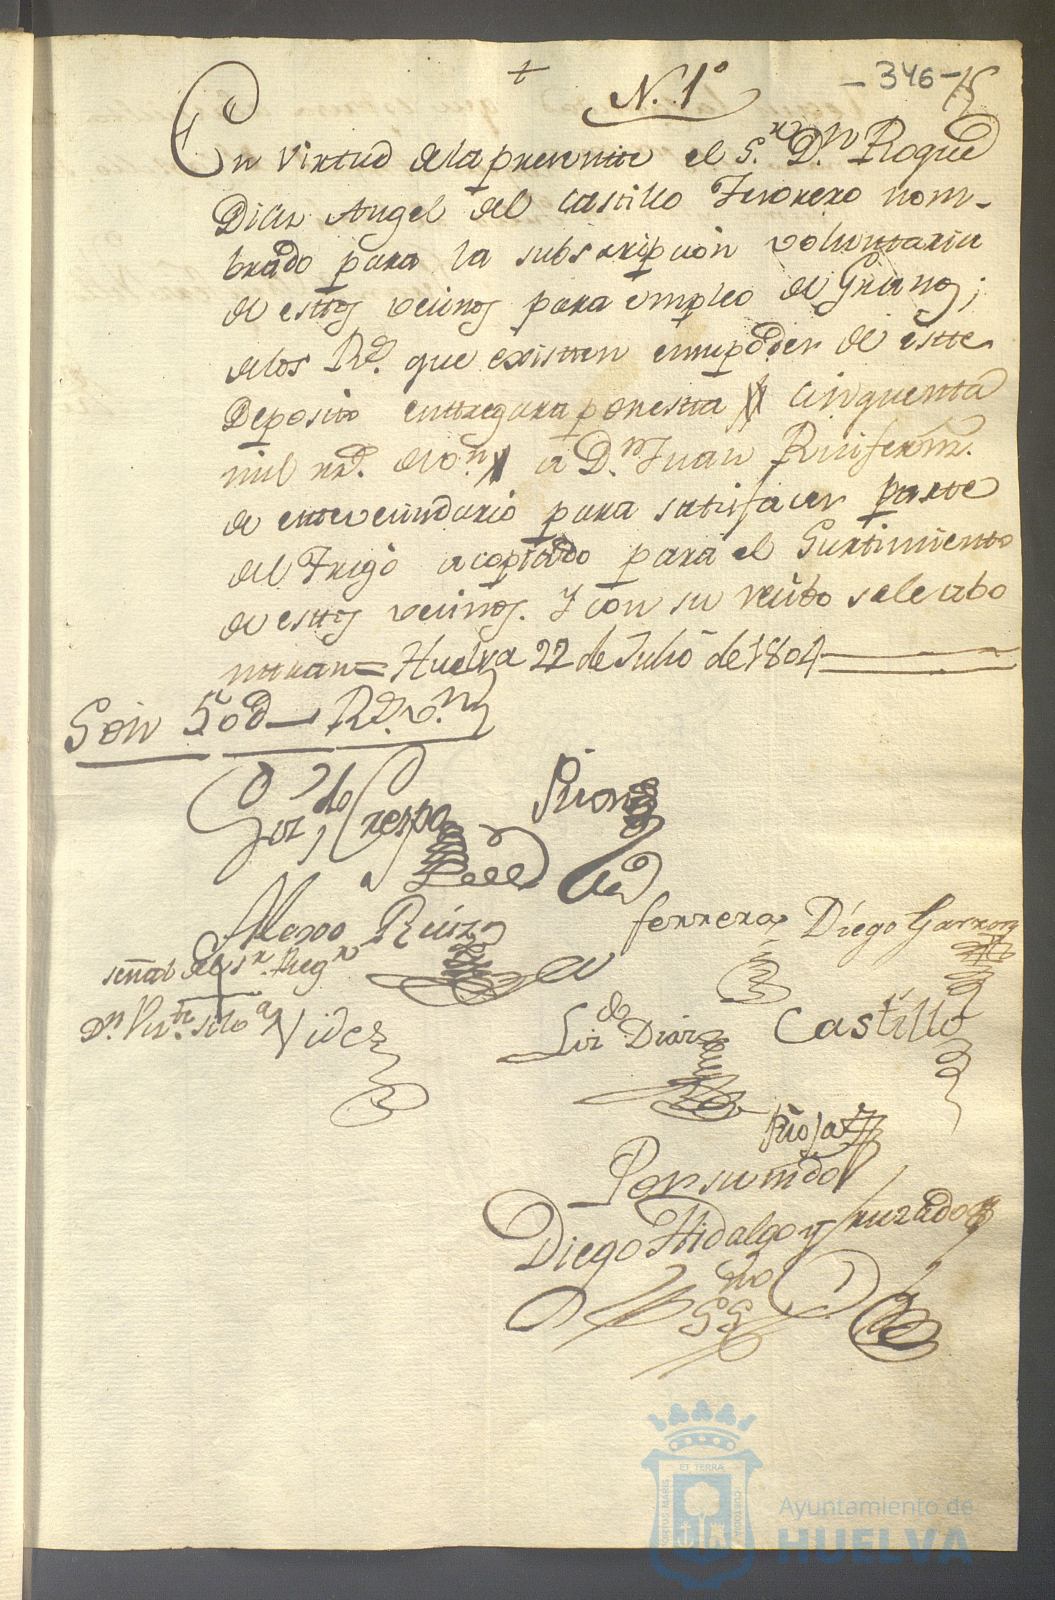 +
N. 1º
- 346 - 15
En Virtud de la presentte el S.or D.n Roque
Diaz Angel del Castillo Thesorero nom-
brado para la subscripcion voluntaria
de esttos vecinos para empleo de Granos;
de los R.s que existten en su poder de estte
Deposito enttregara por estta cinquenta
mil rr.s de v.n a D.n Juan Ruifernz.
de este vecindario para satisfacer partte
del Trigo acoptado para el Surtimiento
de esttos vecinos. Y con su recibo se le abo
naran = Huelva 22 de Julio de 1804
Son 50d R.s v.n
Liz.do Crespo Rions
Alonso Ruiz
ferrera Diego Garzon
señal del s.r Reg.r
D.n Vis.te
Videz
Liz.do Diaz Castillo
Rioja
Por su mdo
Diego Hidalgo y hurzado
no
ET TERRA
PORTUS MARIS
CUSTODIA
Ayuntamiento de
HUELVA